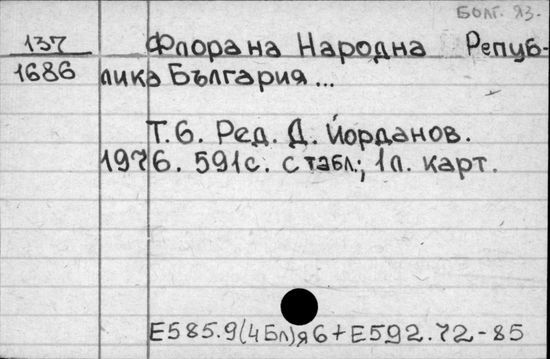 Болг. яз.
137 Флора на Народна Репуб-
1686 лика България ...
Т. 6. Ред. Д. Йорданов.
1976. 591 с. с табл.; 1 л. карт.
Е585.9(4Бл)я6+Е592.72-85